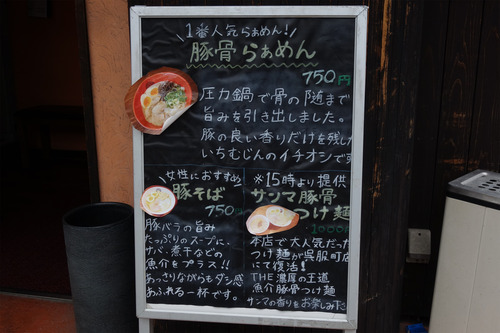 1番人気らぁめん!
豚骨らぁめん
750円
圧力鍋で骨の随まで
旨みを引き出しました。
豚の良い香りだけを残した
いちむじんのイチオシです
女性におすすめ
豚そば
750円
豚バラの旨み
たっぷりのスープに、
サバ、煮干などの
魚介をプラス!!
あっさりながらもダシ感
あふれる一杯です。
※15時より提供
サンマ豚骨
つけ麺
1000円
本店で大人気だった
つけ麺が呉服町店
にて復活!
THE濃厚の王道
魚介豚骨つけ麺
サンマの香りをお楽しみ下さい